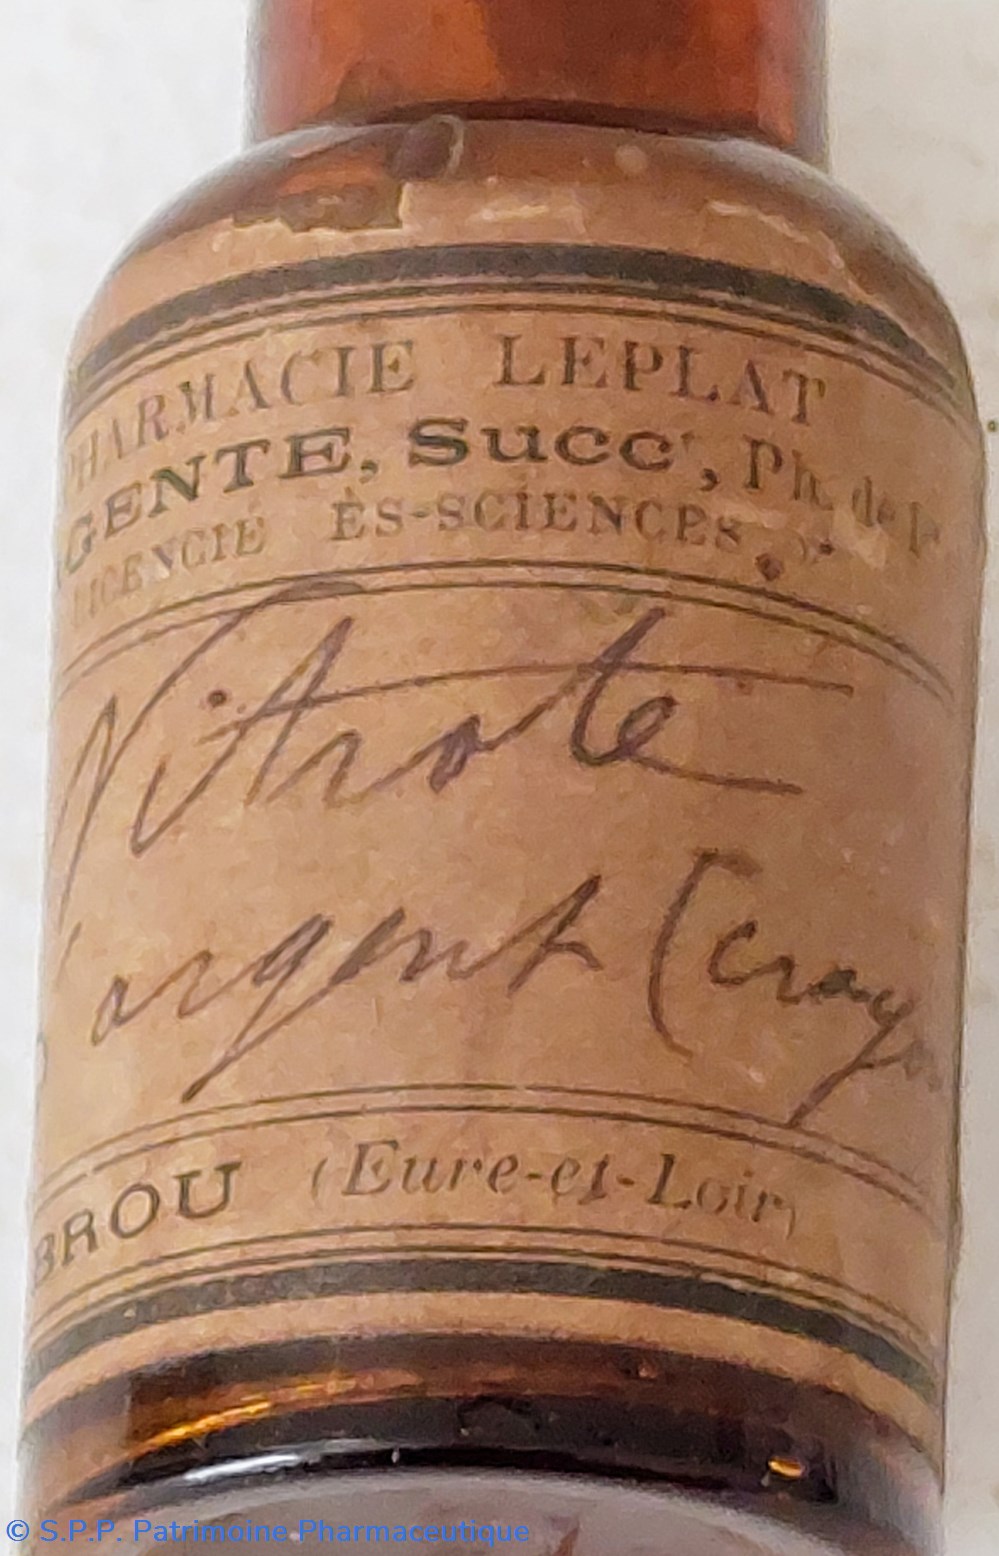 PHARMACIE LEPLAT
GENTE, Succr, Ph. de 1
LICENCIÉ ÈS-SCIENCES
Nitrate
d'argent (crayo
BROU (Eure-et-Loir)
© S.P.P. Patrimoine Pharmaceutique